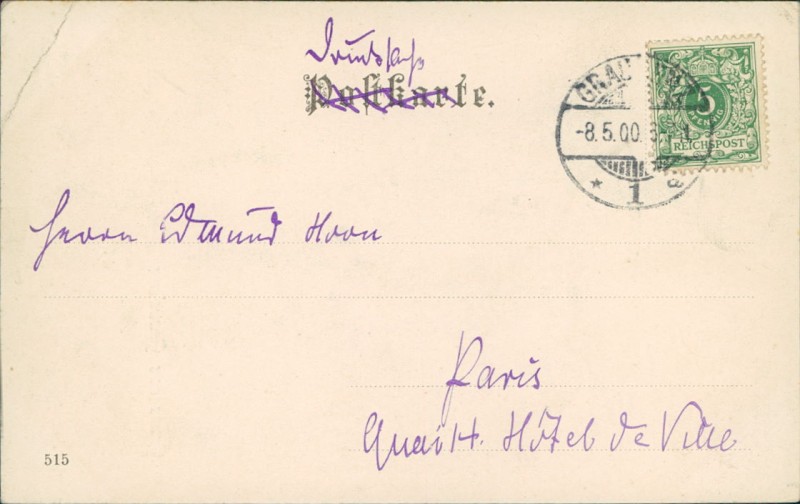 Drucksache
Postkarte.
5
PFENNIG
REICHSPOST
-8.5.00.
* 1 a
Herrn Edmund Horn
Paris
Quai H. Hôtel de Ville
515